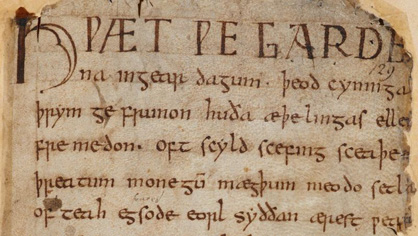 HǷÆT ǷE GARDE
na ingear dagum. þeod cyninga
þrym ge frunon huða æþelingas elle
fre medon. oft scyld scefing sceaþe
þreatum monegū mægþum meodo setla
of teah egsode eorl syððan ærest ƿear